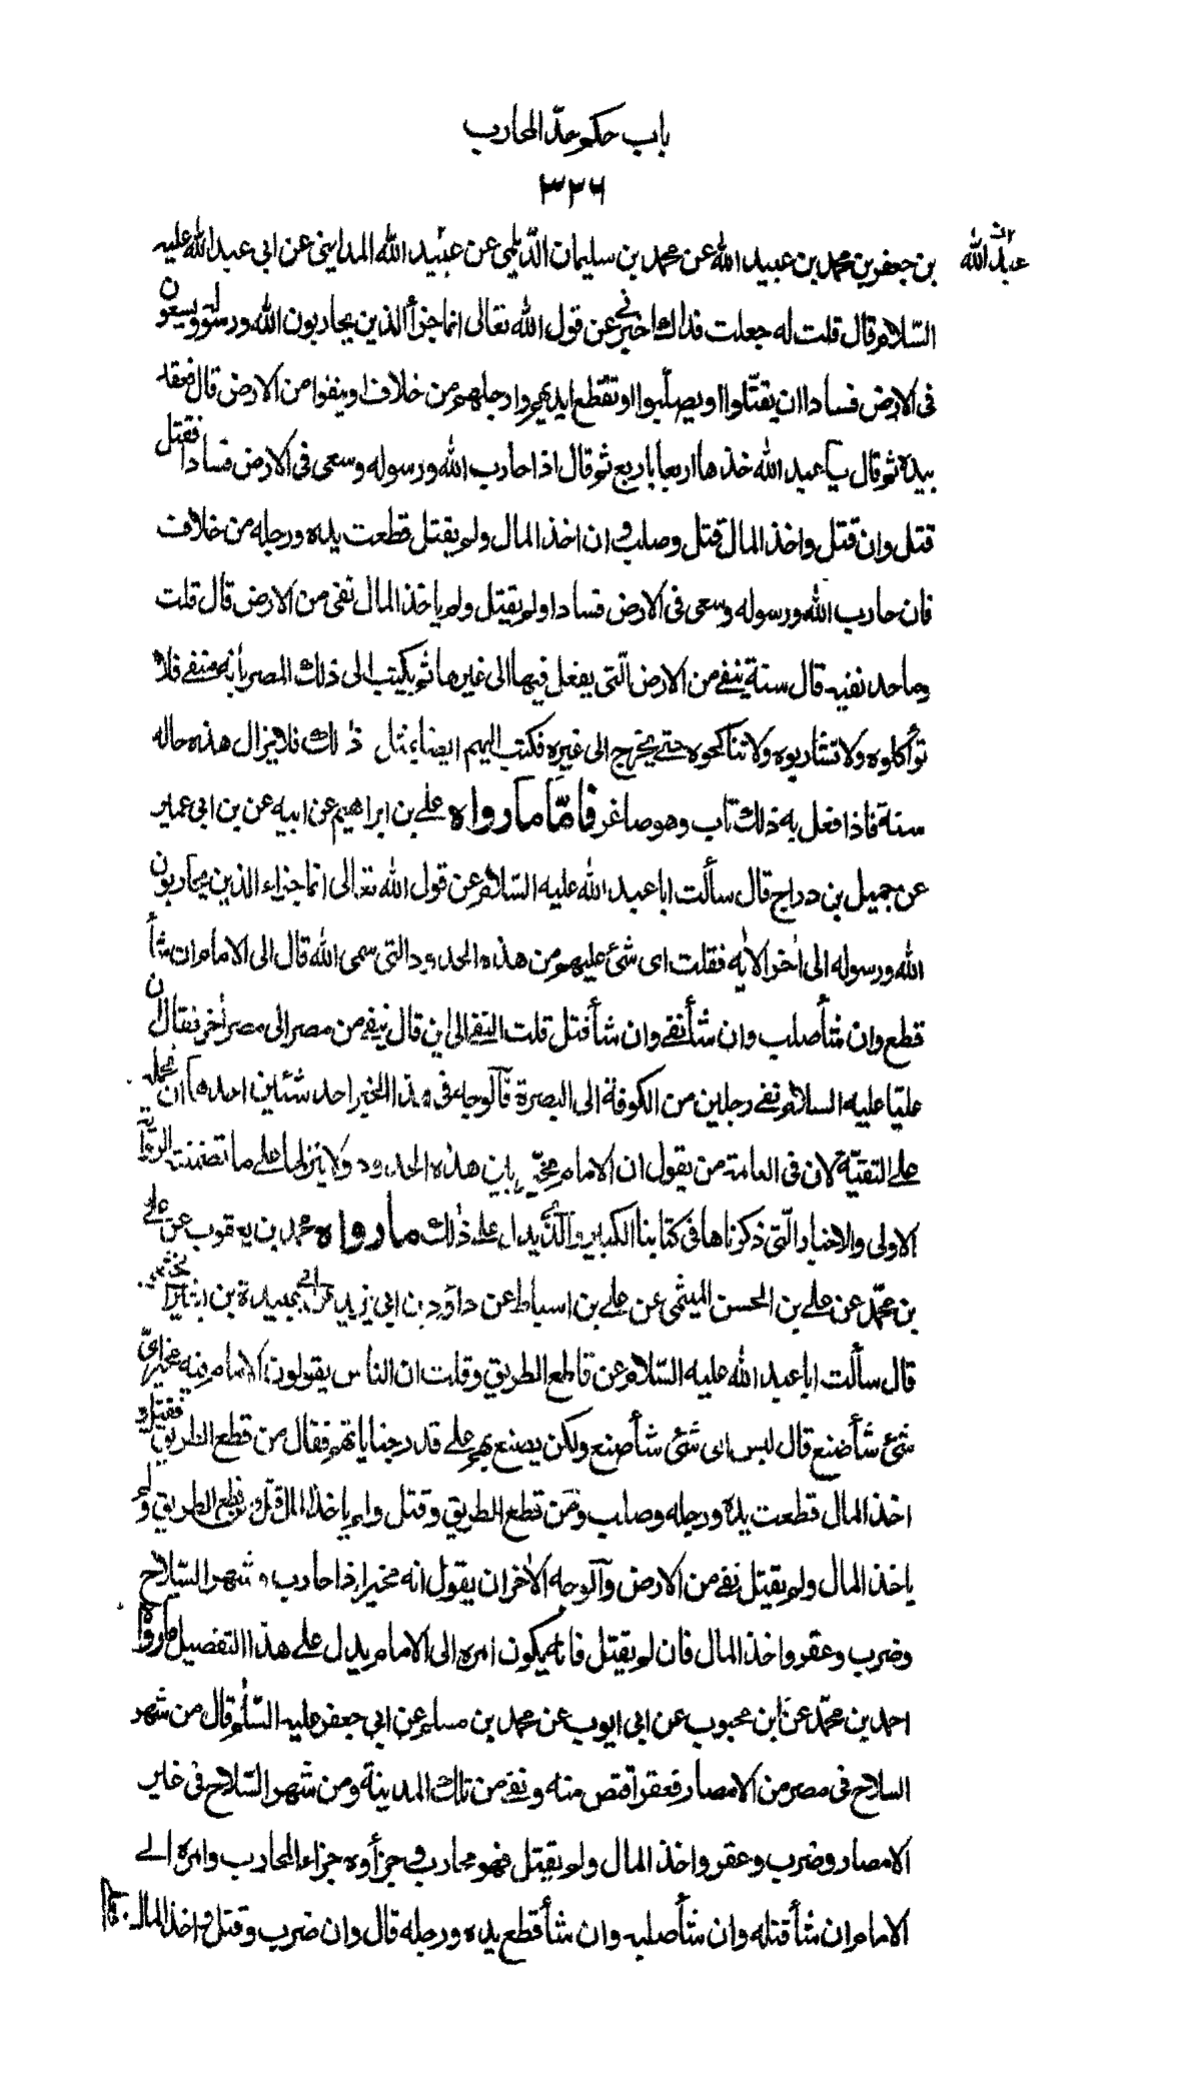 باب حكم حدّ المحارب
٣٢٦
عبد الله
بن جعفر بن محمد بن عبيد الله عن محمد بن سليمان الدّيلمى عن عبيد الله المداينى عن ابى عبد الله عليه
السّلام قال قلت له جعلت فداك اخبرنى عن قول الله تعالى انما جزأ الذين يحاربون الله ورسوله ويسعون
فى الارض فسادا ان يقتّلوا او يصلّبوا او تقطع ايديهم وارجلهم من خلاف او ينفوا من الارض قال فعقد
بيده ثم قال يا عبد الله خذها اربعا باربع ثم قال اذا حارب الله ورسوله وسعى فى الارض فسادا فقتل
قتل وان قتل واخذ المال قتل وصلب وان اخذ المال ولم يقتل قطعت يده ورجله من خلاف
فان حارب الله ورسوله وسعى فى الارض فسادا ولم يقتل ولم ياخذ المال نفى من الارض قال قلت
وما حد نفيه قال سنة ينفى من الارض الّتى يفعل فيها الى غيرها ثم يكتب الى ذلك المصر بأنه منفى فلا
تؤاكلوه ولا تشاربوه ولا تناكحوه حتى يخرج الى غيره فكتب اليهم ايضا بمثل ذلك فلا يزال هذه حاله
سنة فاذا فعل به ذلك تاب وهو صاغر فامّا ما رواه على بن ابراهيم عن ابيه عن بن ابى عمير
عن جميل بن دراج قال سألت ابا عبد الله عليه السّلام عن قول الله تعالى انما جزاء الذين يحاربون
الله ورسوله الى اخر الاية فقلت اى شئ عليهم من هذه الحدود التى سمى الله قال الى الامام ان شأ
قطع وان شأ صلب وان شأ نفى وان شأ قتل قلت النفى الى اين قال ينفى من مصر الى مصر اخر فقال ان
عليّا عليه السلام نفى رجلين من الكوفة الى البصرة فالوجه فى هذا الخبر احد شئين احدهما ان نحمله
على التقيّة لان فى العامة من يقول ان الامام مخيّر بين هذه الحدود ولا ينزلها على ما تضمنته الرواية
الاولى والاخبار الّتى ذكرناها فى كتابنا الكبير والّذى يدل على ذلك ما رواه محمد بن يعقوب عن على
بن محمّد عن على بن الحسن الميثمى عن على بن اسباط عن داود بن ابى يزيد عن ابى عبيدة بن بشير الخثعمى
قال سألت ابا عبد الله عليه السّلام عن قاطع الطريق وقلت ان الناس يقولون الامام فيه مخير اىّ
شئ شأ صنع قال ليس اى شئ شأ صنع ولكن يصنع بهم على قدر جناياتهم فقال من قطع الطريق فقتل و
اخذ المال قطعت يده ورجله وصلب ومن قطع الطريق وقتل ولم ياخذ المال قتل ومن قطع الطريق ولم
ياخذ المال ولم يقتل نفى من الارض والوجه الاخر ان يقول انه مخير اذا حارب وشهر السّلاح
وضرب وعقر واخذ المال فان لم يقتل فانه يكون امره الى الامام يدل على هذا التفصيل ما رواه
احمد بن محمّد عن ابن محبوب عن ابى ايوب عن محمد بن مسلم عن ابى جعفر عليه السّلم قال من شهر
السلاح فى مصر من الامصار فعقر اقتص منه ونفى من تلك المدينة ومن شهر السّلاح فى غير
الامصار وضرب وعقر واخذ المال ولم يقتل فهو محارب فجزأوه جزاء المحارب وامره الى
الامام ان شأ قتله وان شأ صلبه وان شأ قطع يده ورجله قال وان ضرب وقتل واخذ المال